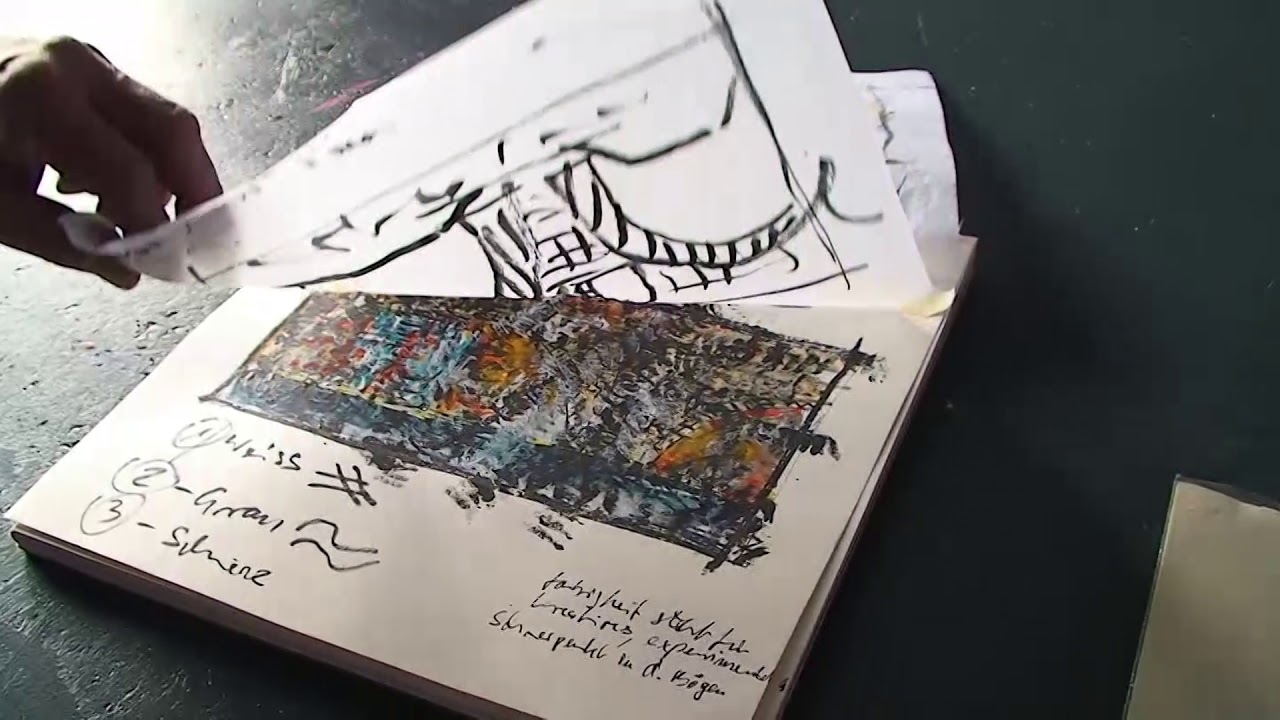 ① Weiss #
② - Grau ≈
③ - Schwarz
farbigkeit steht für
kreatives, experiment
Schwerpunkt in d. Bögen